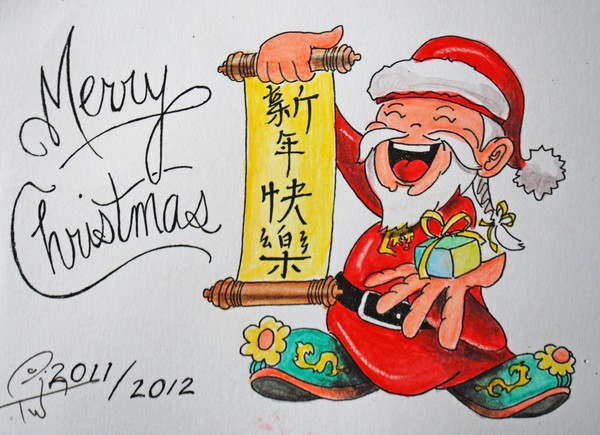 Merry
Christmas
新年快樂
2011/2012